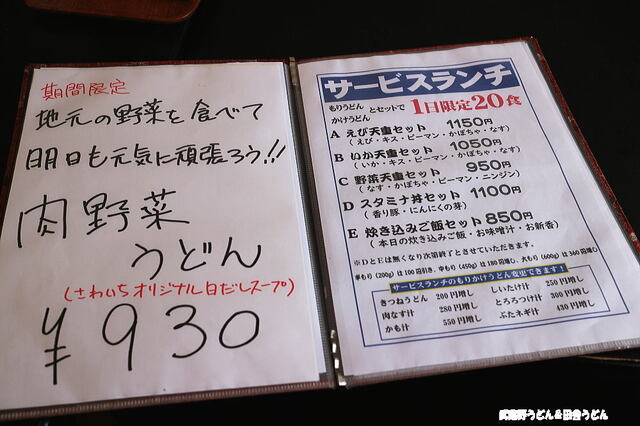 期間限定
地元の野菜を食べて
明日も元気に頑張ろう!!
肉野菜
うどん
(さわいちオリジナル白だしスープ)
¥930
サービスランチ
もりうどん
かけうどん
とセットで
1日限定20食
A えび天重セット 1150円
(えび・キス・ピーマン・かぼちゃ・なす)
B いか天重セット 1050円
(いか・キス・ピーマン・かぼちゃ・なす)
C 野菜天重セット 950円
(なす・かぼちゃ・ピーマン・ニンジン)
D スタミナ丼セット 1100円
(香り豚・にんにくの芽)
E 炊き込みご飯セット 850円
(本日の炊き込みご飯・お味噌汁・お新香)
※DとEは無くなり次第終了とさせていただきます。
半もり(200g)は100円引き、中もり(450g)は180円増し、大もり(600g)は360円増し
サービスランチのもりかけうどん変更できます!
きつねうどん 200円増し しいたけ汁 250円増し
肉なす汁 280円増し とろろつけ汁 300円増し
かも汁 550円増し ぶたネギ汁 430円増し
武蔵野うどん&田舎うどん